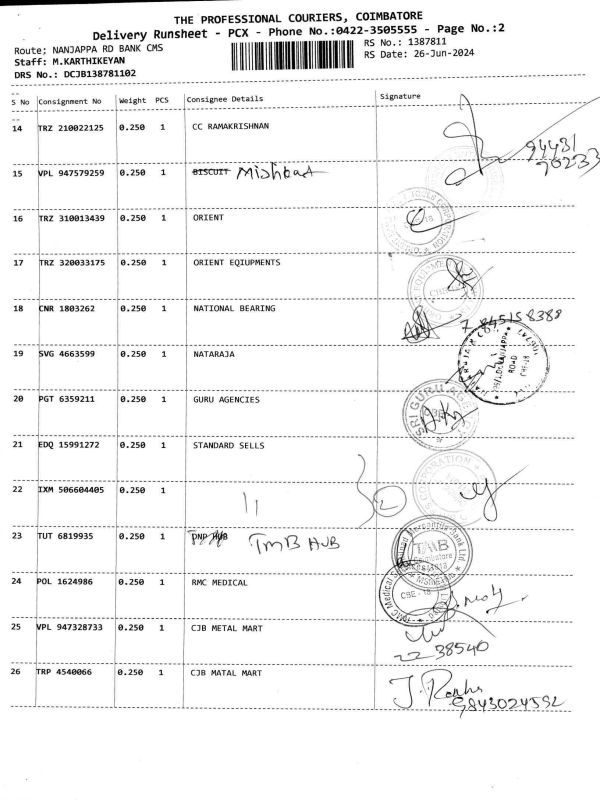 THE PROFESSIONAL COURIERS, COIMBATORE
Delivery Runsheet - PCX - Phone No.:0422-3505555 - Page No.:2
Route; NANJAPPA RD BANK CMS RS No.: 1387811
Staff: M.KARTHIKEYAN RS Date: 26-Jun-2024
DRS No.: DCJB138781102
S No Consignment No Weight PCS Consignee Details Signature
14 TRZ 210022125 0.250 1 CC RAMAKRISHNAN
94431
15 VPL 947579259 0.250 1 BISCUIT
16 TRZ 310013439 0.250 1 ORIENT
17 TRZ 320033175 0.250 1 ORIENT EQIUPMENTS
18 CNR 1803262 0.250 1 NATIONAL BEARING
19 SVG 4663599 0.250 1 NATARAJA
ROAD
20 PGT 6359211 0.250 1 GURU AGENCIES
SRI GURU
21 EDQ 15991272 0.250 1 STANDARD SELLS
22 IXM 506604405 0.250 1 11 2
23 TUT 6819935 0.250 1 DNP HUB TMB HUB
TMB
Coimbatore
24 POL 1624986 0.250 1 RMC MEDICAL
CBE - 18
25 VPL 947328733 0.250 1 CJB METAL MART
22 38540
26 TRP 4540066 0.250 1 CJB MATAL MART
9843024592